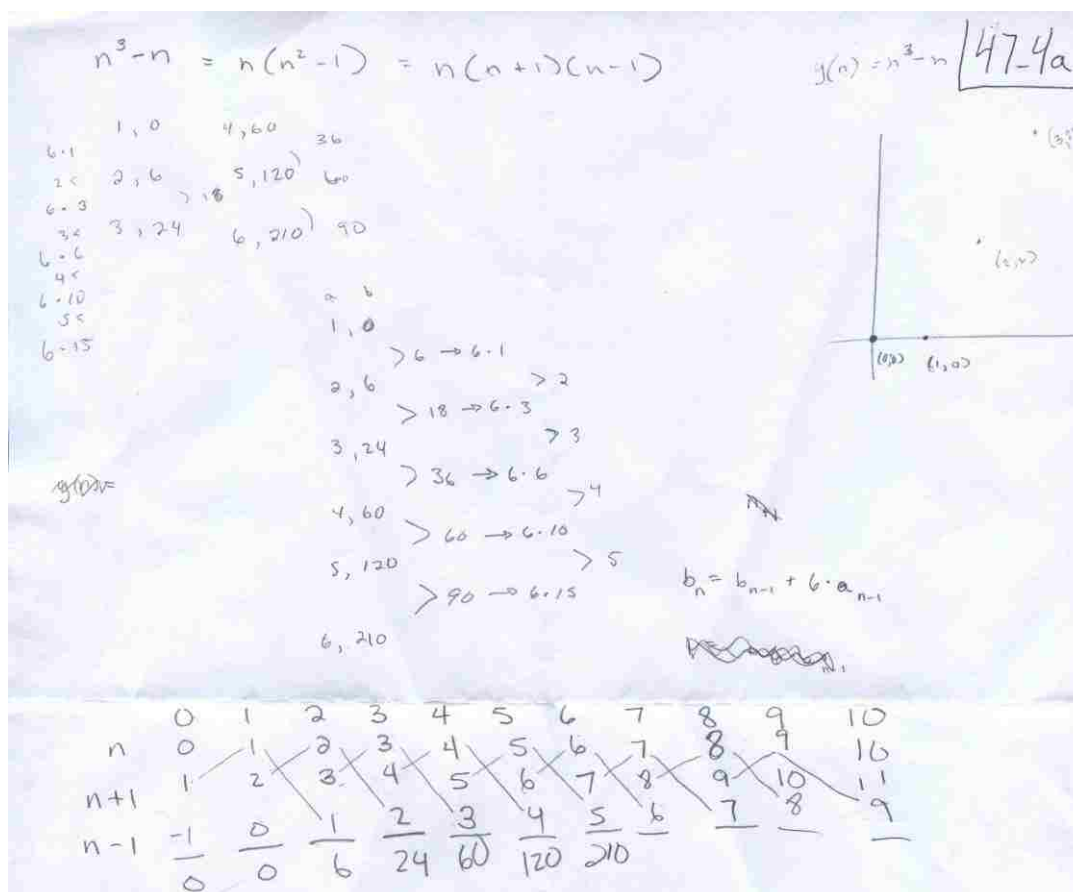 n³-n = n(n²-1) = n(n+1)(n-1)
g(n) = n³-n
47-4a
1, 0 4, 60
6·1 36
2< 2, 6 5, 120) 60
6·3 > 18
3< 3, 24 6, 210) 90
6·6
4<
6·10
5<
6·15
(0,0) (1,0)
a b
1, 0
> 6 → 6·1
2, 6 > 2
> 18 → 6·3
3, 24 > 3
> 36 → 6·6
4, 60 > 4
> 60 → 6·10
5, 120 > 5
> 90 → 6·15
6, 210
bₙ = bₙ₋₁ + 6·aₙ₋₁
0 1 2 3 4 5 6 7 8 9 10
n 0 1 2 3 4 5 6 7 8 9 10
n+1 1 2 3 4 5 6 7 8 9 10 11
n-1 -1 0 1 2 3 4 5 6 7 8 9
0 0 6 24 60 120 210